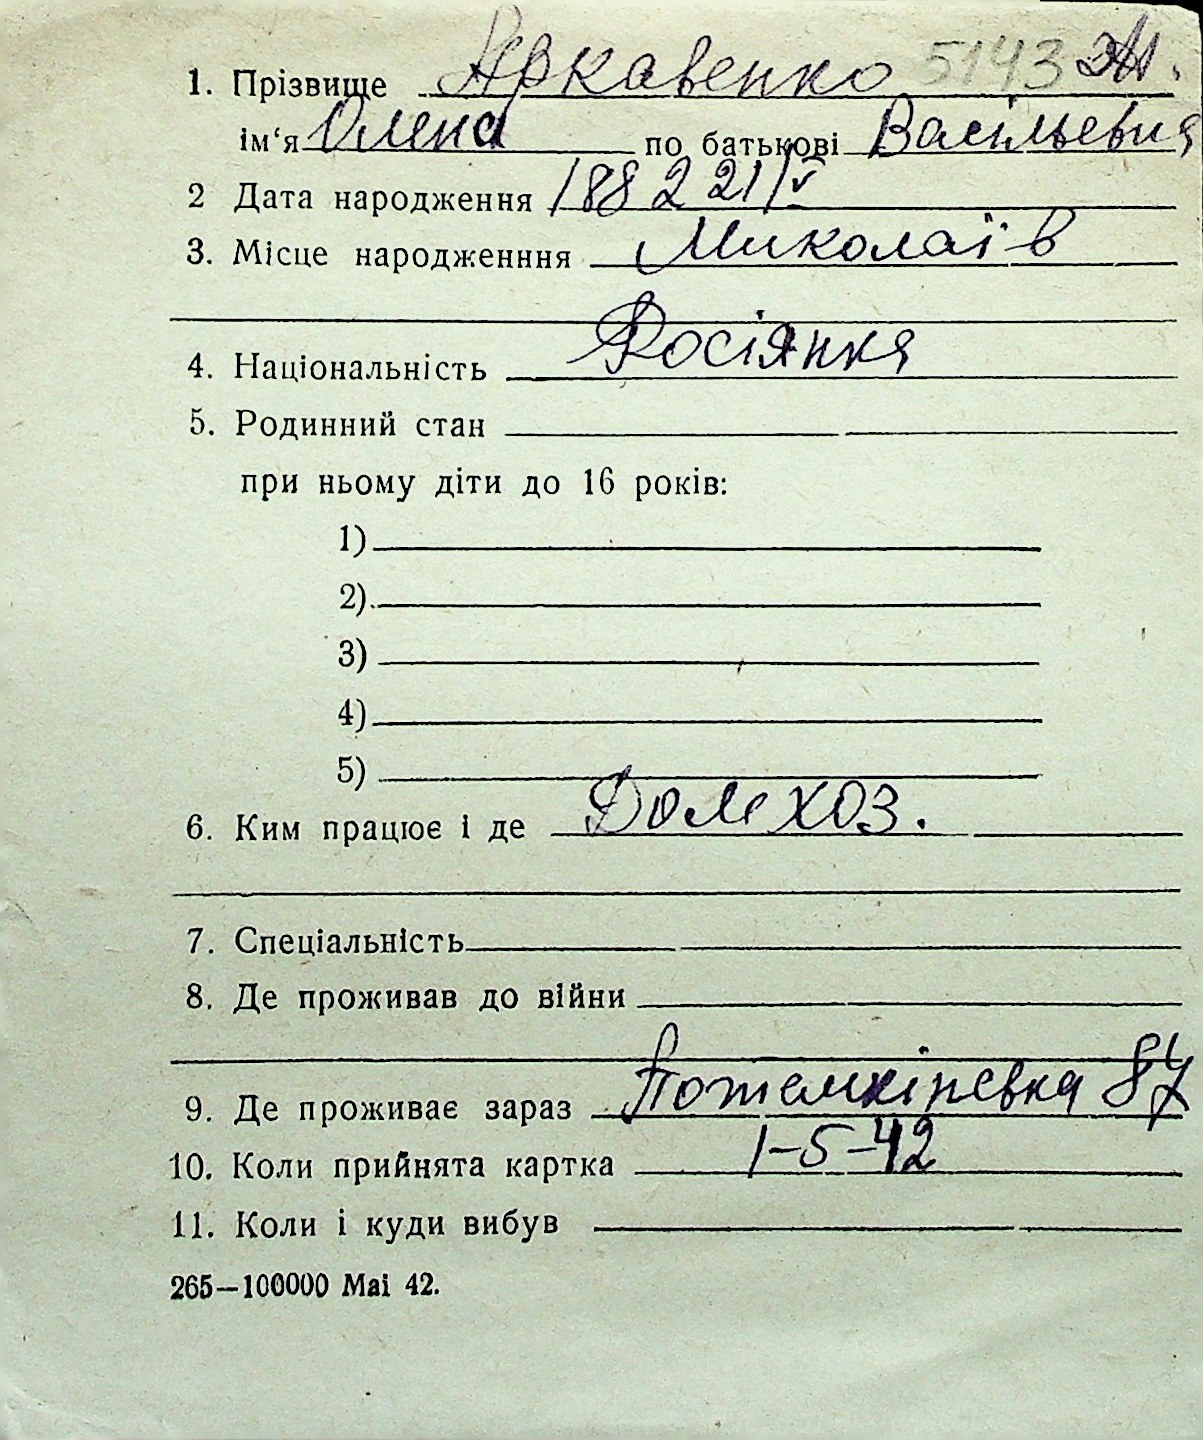 1. Прізвище Яркавенко 5143
ім‘я Олена по батькові Васільевия
2 Дата народження 1882 21/V
3. Місце народженння Миколаїв
4. Національність Росіянка
5. Родинний стан
при ньому діти до 16 років:
1)
2)
3)
4)
5)
6. Ким працює і де Дом хоз.
7. Спеціальність
8. Де проживав до війни
9. Де проживає зараз Потемкіневка 87
10. Коли прийнята картка 1-5-42
11. Коли і куди вибув
265—100000 Mai 42.